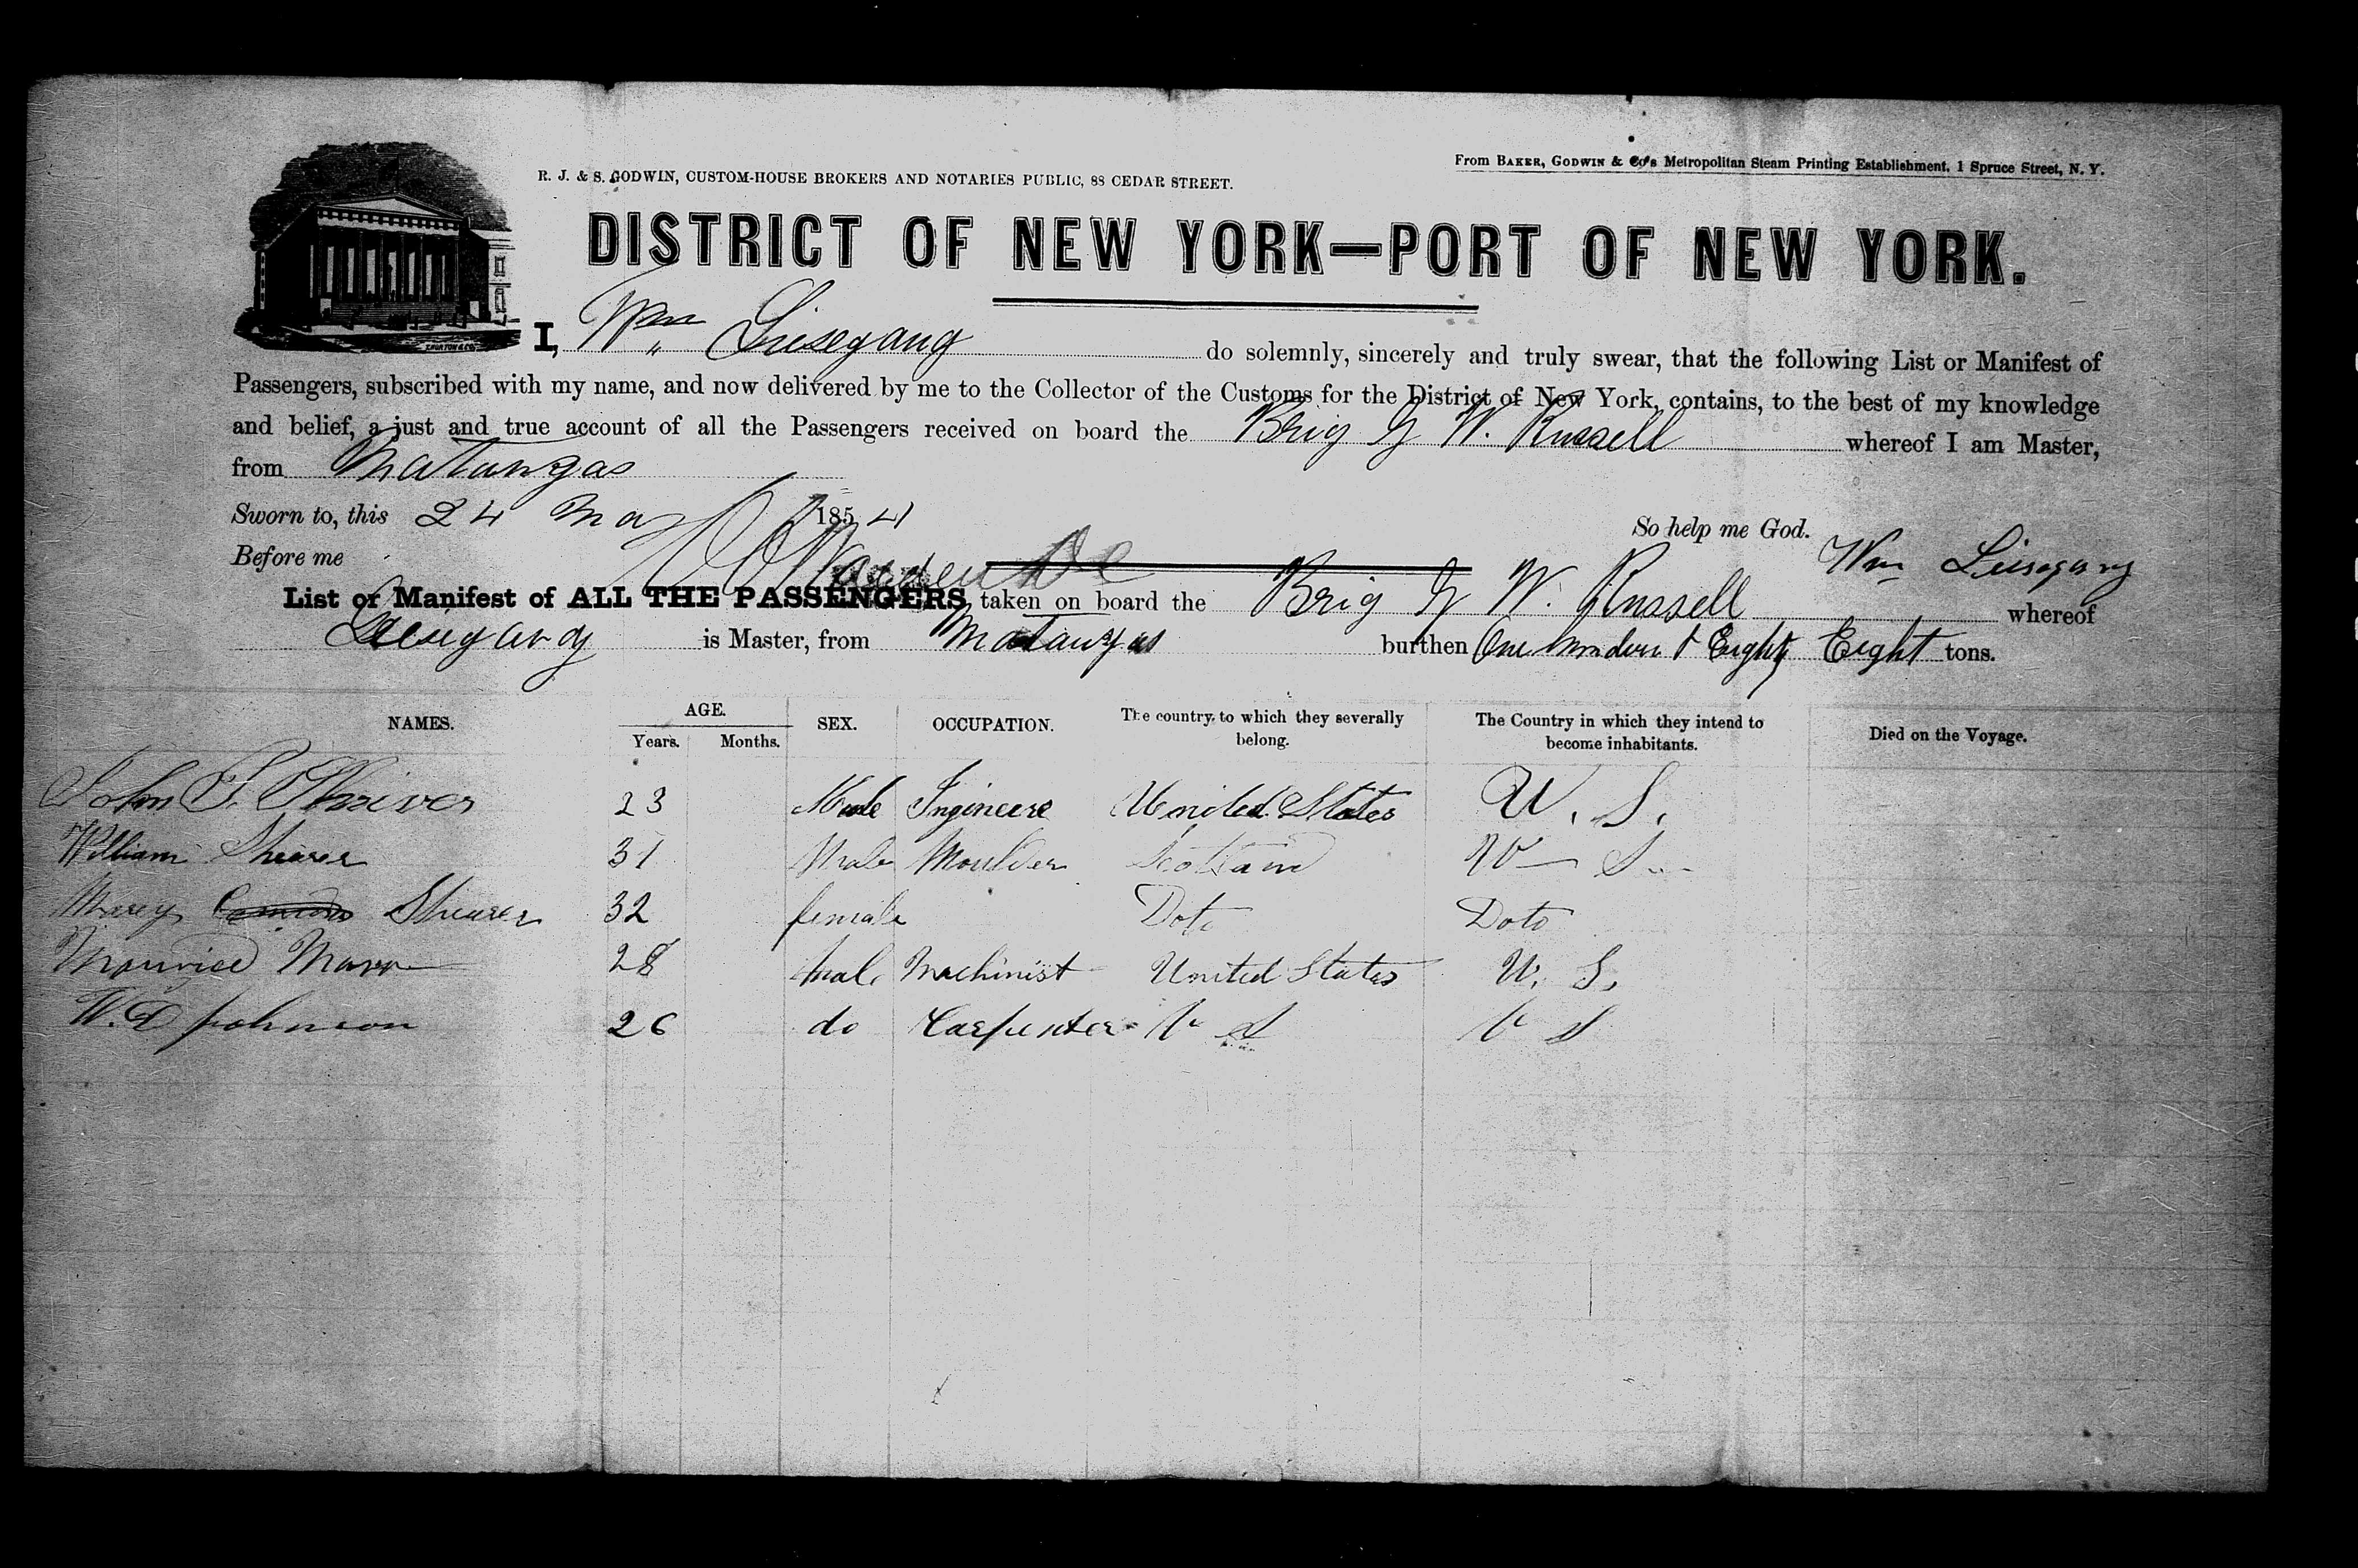 R. J. & S. GODWIN, CUSTOM-HOUSE BROKERS AND NOTARIES PUBLIC, 88 CEDAR STREET.
From BAKER, GODWIN & Co's Metropolitan Steam Printing Establishment, 1 Spruce Street, N. Y.
DISTRICT OF NEW YORK—PORT OF NEW YORK.
I, Wm Liesegang do solemnly, sincerely and truly swear, that the following List or Manifest of
Passengers, subscribed with my name, and now delivered by me to the Collector of the Customs for the District of New York, contains, to the best of my knowledge
and belief, a just and true account of all the Passengers received on board the Brig G W. Russell whereof I am Master,
from Matanzas
Sworn to, this 24 May 1854 So help me God.
Before me Wm Liesegang
List or Manifest of ALL THE PASSENGERS taken on board the Brig G W. Russell whereof
Liesegang is Master, from Matanzas burthen One hundred & Eighty Eight tons.
NAMES. AGE. SEX. OCCUPATION. The country to which they severally belong. The Country in which they intend to become inhabitants. Died on the Voyage.
Years. Months.
John T. Shriver 23 Male Ingineere United States U. S.
William Shearer 31 Male Moulder Scotland U S
Mary Shearer 32 female Doto Doto
Mourice Marr 28 Male Machinist United States U. S.
W. D Johnson 26 do Carpenter U S U S